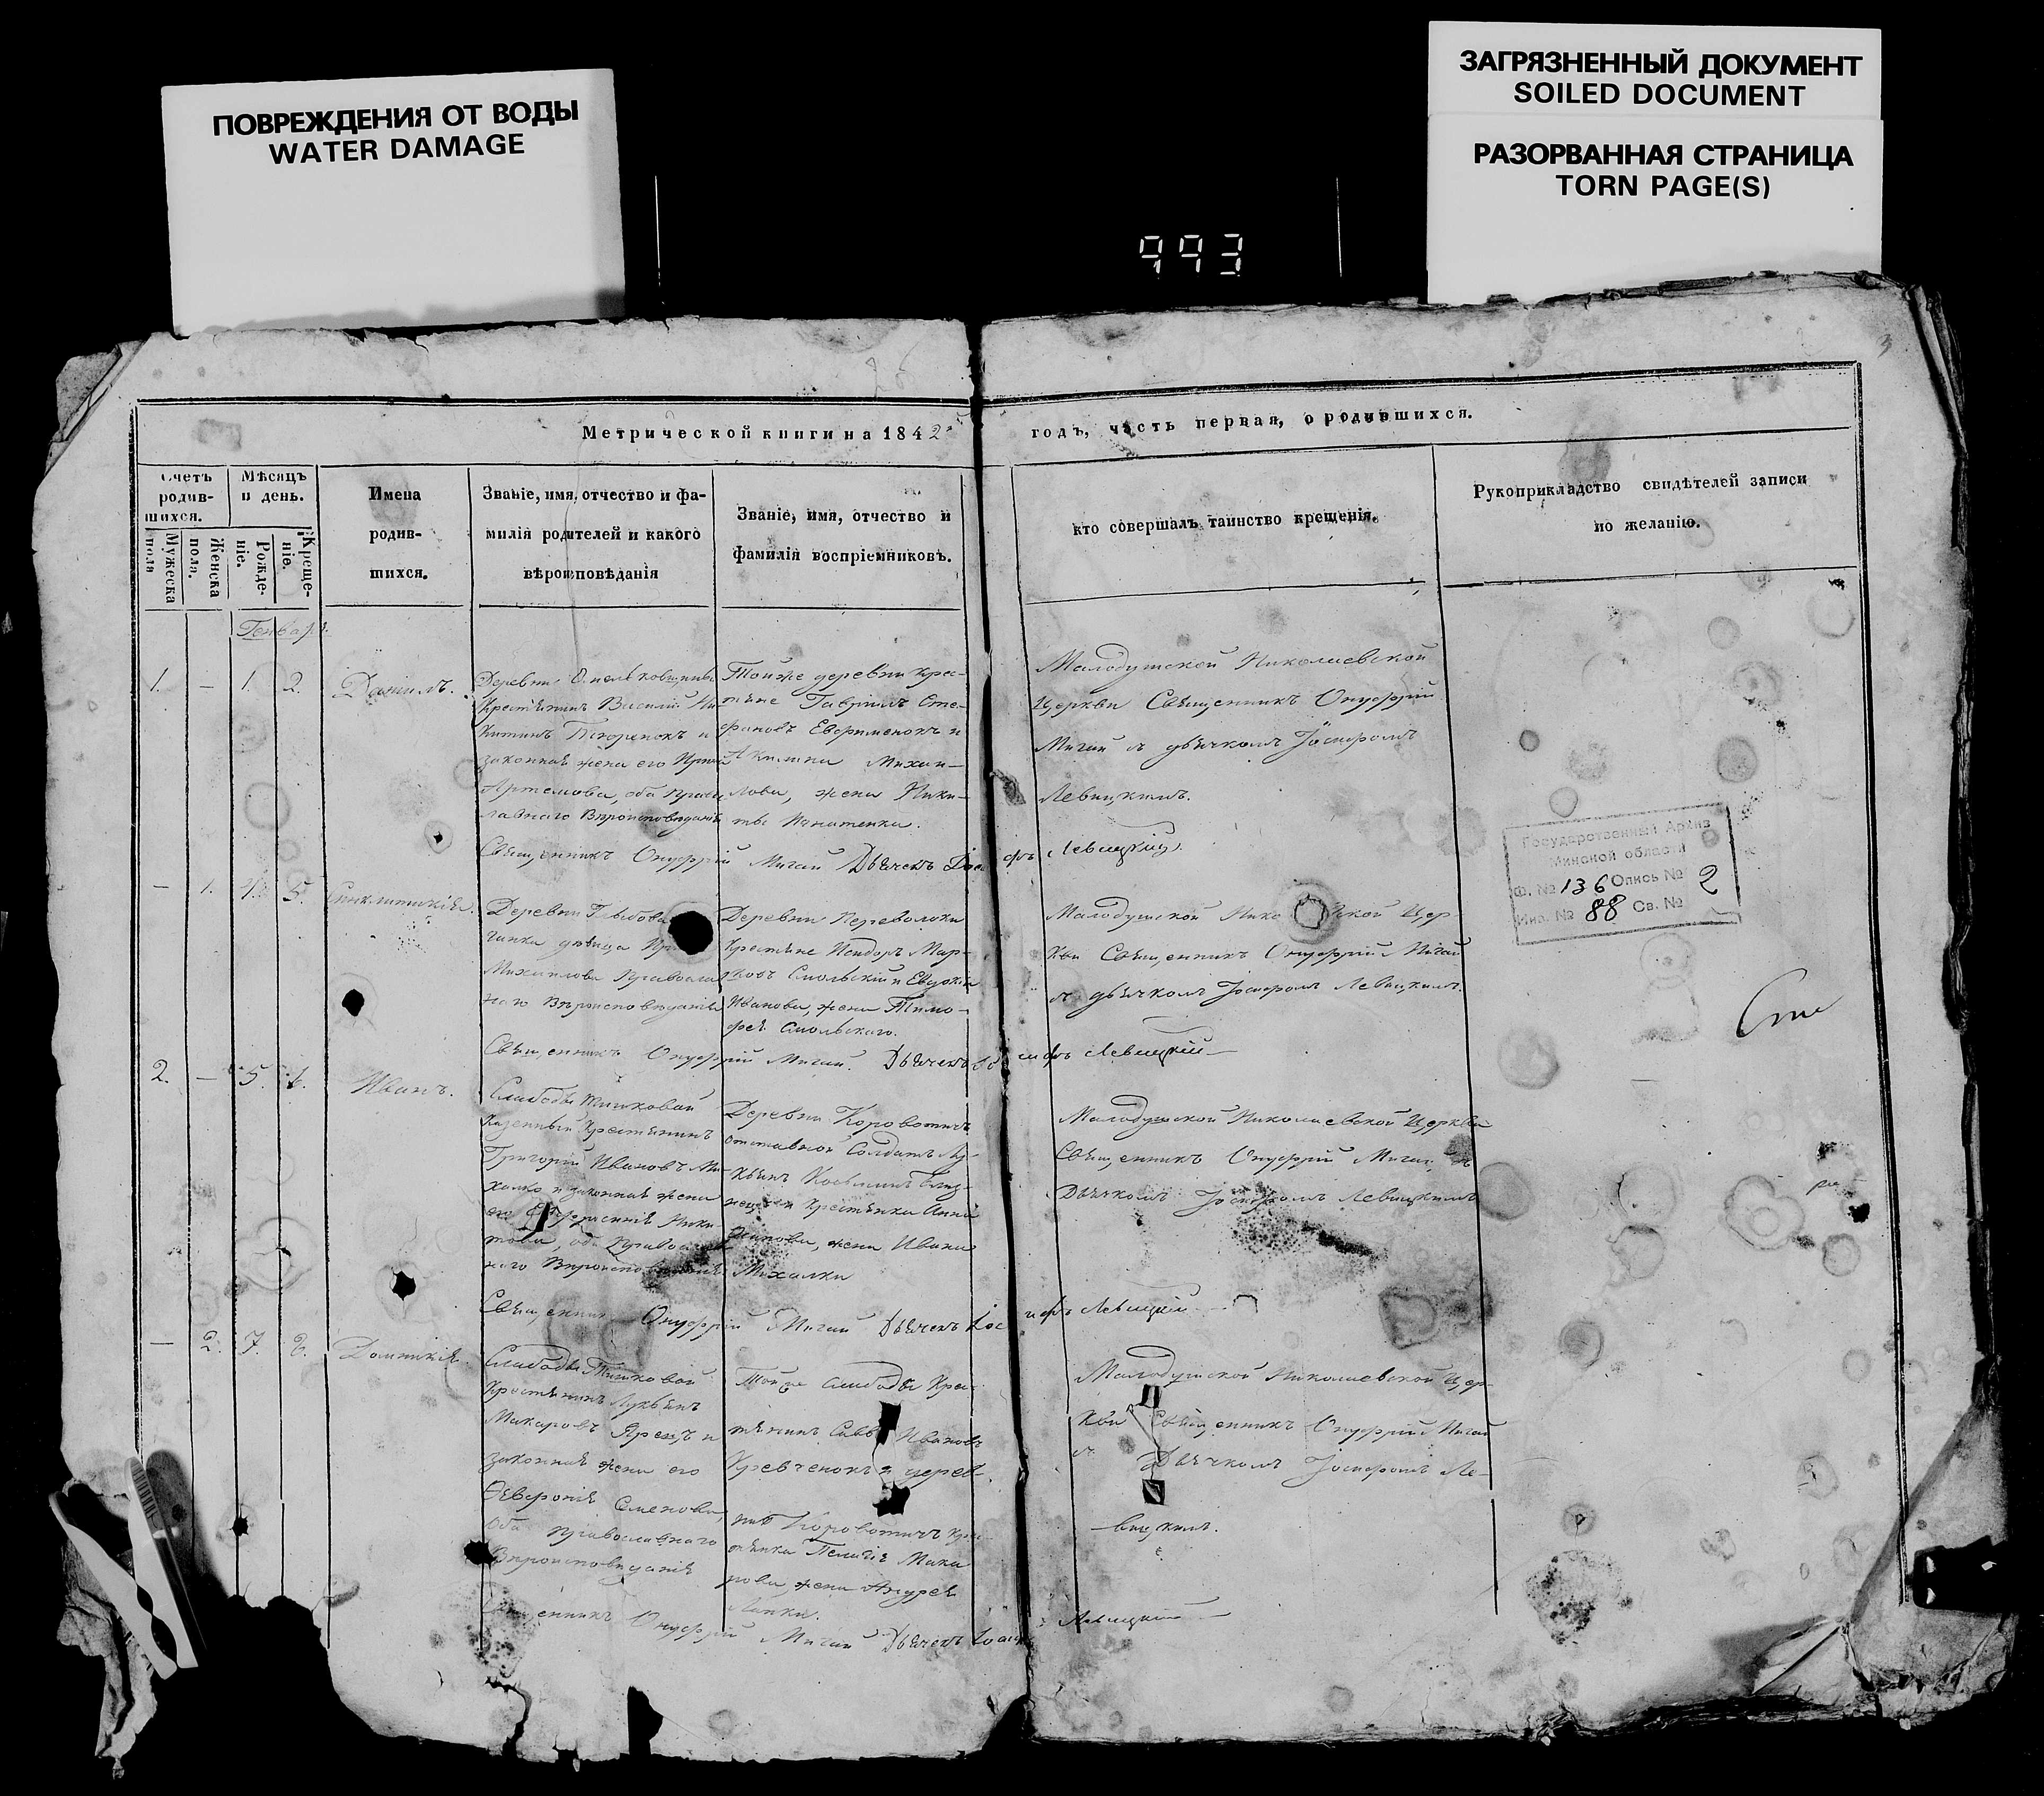 ПОВРЕЖДЕНИЯ ОТ ВОДЫ
WATER DAMAGE
ЗАГРЯЗНЕННЫЙ ДОКУМЕНТ
SOILED DOCUMENT
РАЗОРВАННАЯ СТРАНИЦА
TORN PAGE(S)
993
26
3
Метрической книги на 1842
годъ, часть первая, о родившихся.
Счетъ родив-
шихся.
Мужеска
пола
Женска
пола.
Мѣсяцъ
и день.
Рожде-
ніе.
Креще-
ніе.
Имена
родив-
шихся.
Званіе, имя, отчество и фа-
милія родителей и какого
вѣроисповѣданія
Званіе, имя, отчество и
фамилія воспріемниковъ.
кто совершалъ таинство крещенія.
Рукоприкладство свидѣтелей записи
по желанію.
Генварь
1. — 1. 2.
Даніилъ.
Деревни
Крестьянинъ Василій Ни-
китинъ и
законная жена его
Артемова, оба Право-
лавнаго Вѣроисповѣданія
Тойже деревни Крес-
тьяне Гавріилъ Сте-
фановъ Ефименокъ и
Акилина Михаи-
лова, жена Ники-
ты Игнатенка.
Малодушской Николаевской
Церкви Священникъ Онуфрій
Мигай съ дьячкомъ Іосифомъ
Левицкимъ.
Священникъ Онуфрій Мигай Дьячекъ Іосифъ Левицкій
— 1. 5.
Синклитикія.
Деревни
дѣвица
Михайлова Православ
наго Вѣроисповѣданія
Деревни Переволоки
Крестьяне Исидоръ Мар-
ковъ Смольскій и Евдокія
Иванова, жена Тимо-
фея Смольскаго.
Малодушской Цер-
кви Священникъ Онуфрій Мигай
съ дьячкомъ Іосифомъ Левицкимъ.
Священникъ Онуфрій Мигай. Дьячекъ Іосифъ Левицкій
2. — 5. 6.
Иванъ.
Слободы
Казенный Крестьянинъ
Григорій Ивановъ Ми-
халко и законная жена
его Ефросинія Ники-
това, оба Православ
наго Вѣроисповѣданія
Деревни Коровотичъ
отставной Солдатъ Лу-
кьянъ
Крестьянка Анна
жена Ивана
Михалки
Малодушской Николаевской Церкви
Священникъ Онуфрій Мигай, съ
Дьячкомъ Іосифомъ Левицкимъ
Священникъ Онуфрій Мигай Дьячекъ Іосифъ Левицкій
— 2. 7. 8.
Домникія.
Слободы
Крестьянинъ Лукьянъ
Макаровъ и
законная жена его
Ѳевронія Семенова,
оба Православнаго
Вѣроисповѣданія
Тойже Слободы Крес-
тьянинъ Савва Ивановъ
Кревченокъ и дерев-
ни Коровотичъ Крес-
тьянка Пелагія Мака
рова, жена Андрея
Малодушской Николаевской Цер-
кви Священникъ Онуфрій Мигай
съ Дьячкомъ Іосифомъ Ле-
вицкимъ.
Священникъ Онуфрій Мигай Дьячекъ Левицкій
Государственный Архив
Минской области
Ф. № 136 Опись № 2
Инв. № 88 Св. №